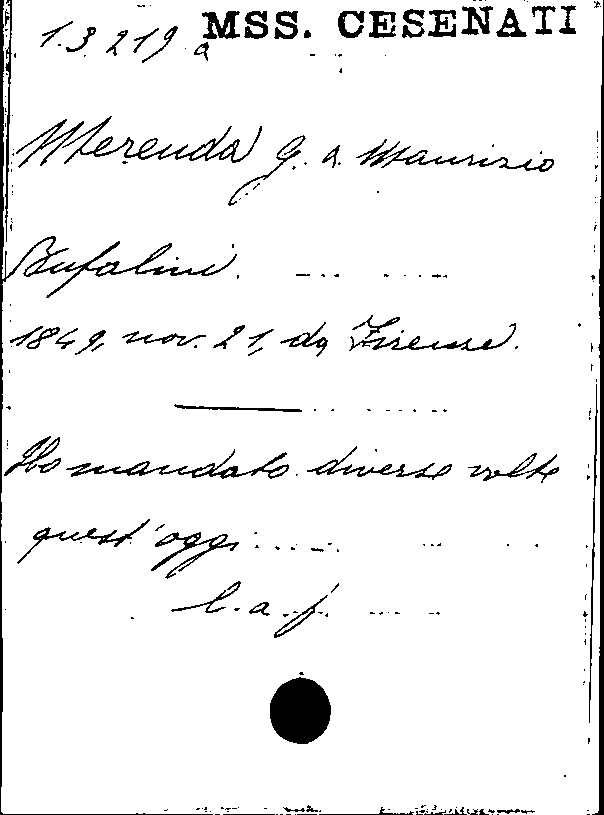 MSS. CESENATI
1.3.219 a
Merenda G. a Maurizio
Bufalini.
1849, nov. 21, da Firenze.
Ho mandato diverse volte
quest'oggi
l. a. f.